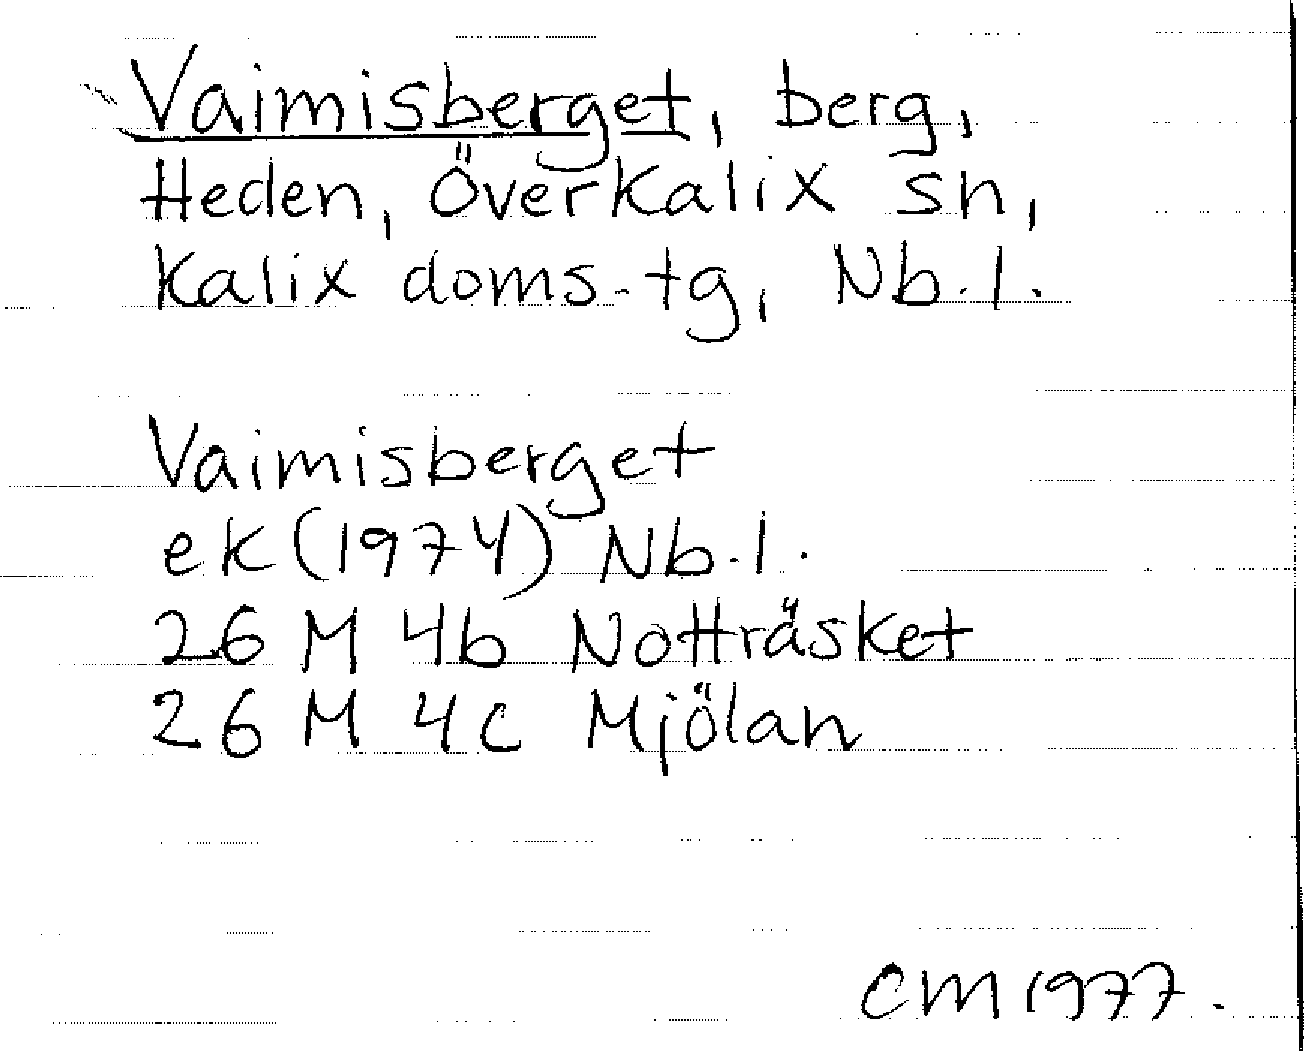 Vaimisberget, berg,
Heden, Överkalix sn,
Kalix doms.tg, Nb.l.
Vaimisberget
ek (1974) Nb.l.
26 M 4b Notträsket
26 M 4c Mjölan
CM 1977.